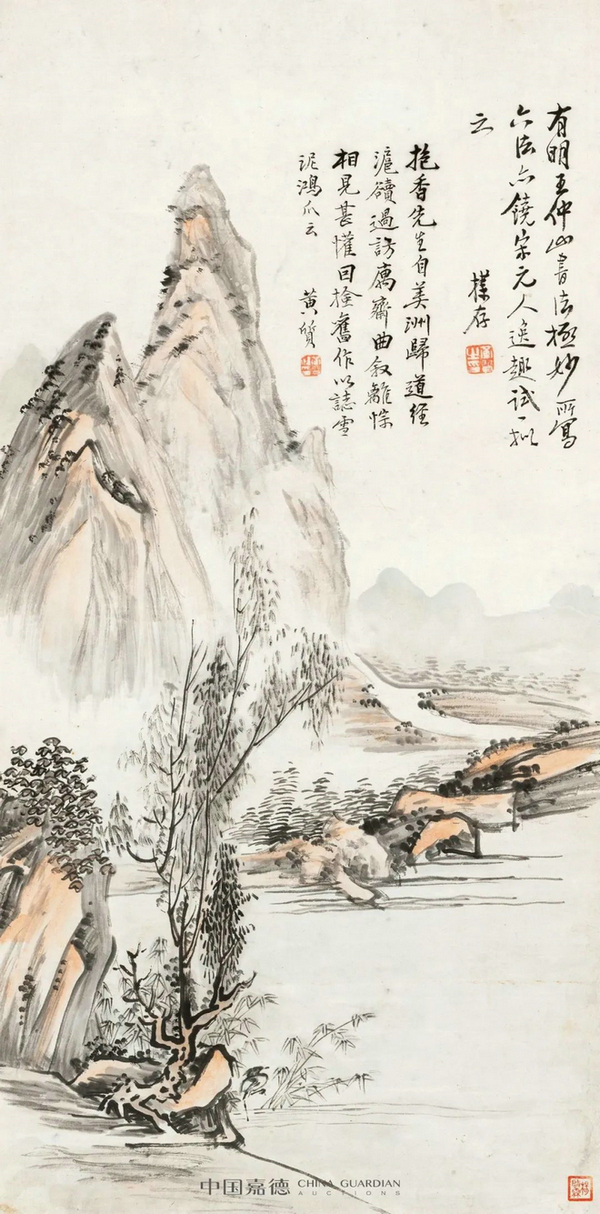 有明王仲山書法極妙所寫
六法亦饒宋元人逸趣試一拟
之
樸存
抱香先生自美洲歸道经
滬瀆過訪寓齋曲叙離悰
相見甚懽因撿舊作以誌雪
泥鴻爪云
黄質
中国嘉德 CHINA GUARDIAN
AUCTIONS